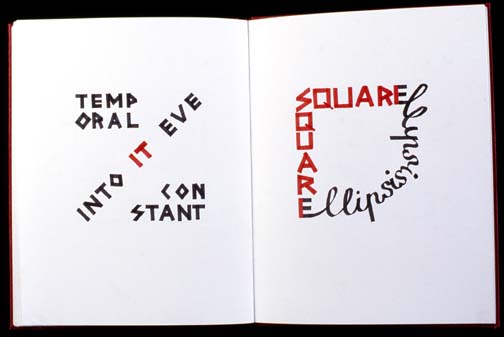 TEMP
ORAL
EVE
IT
INTO
CON
STANT
SQUARE
SQUARE
Ellipsis
Ellipsis